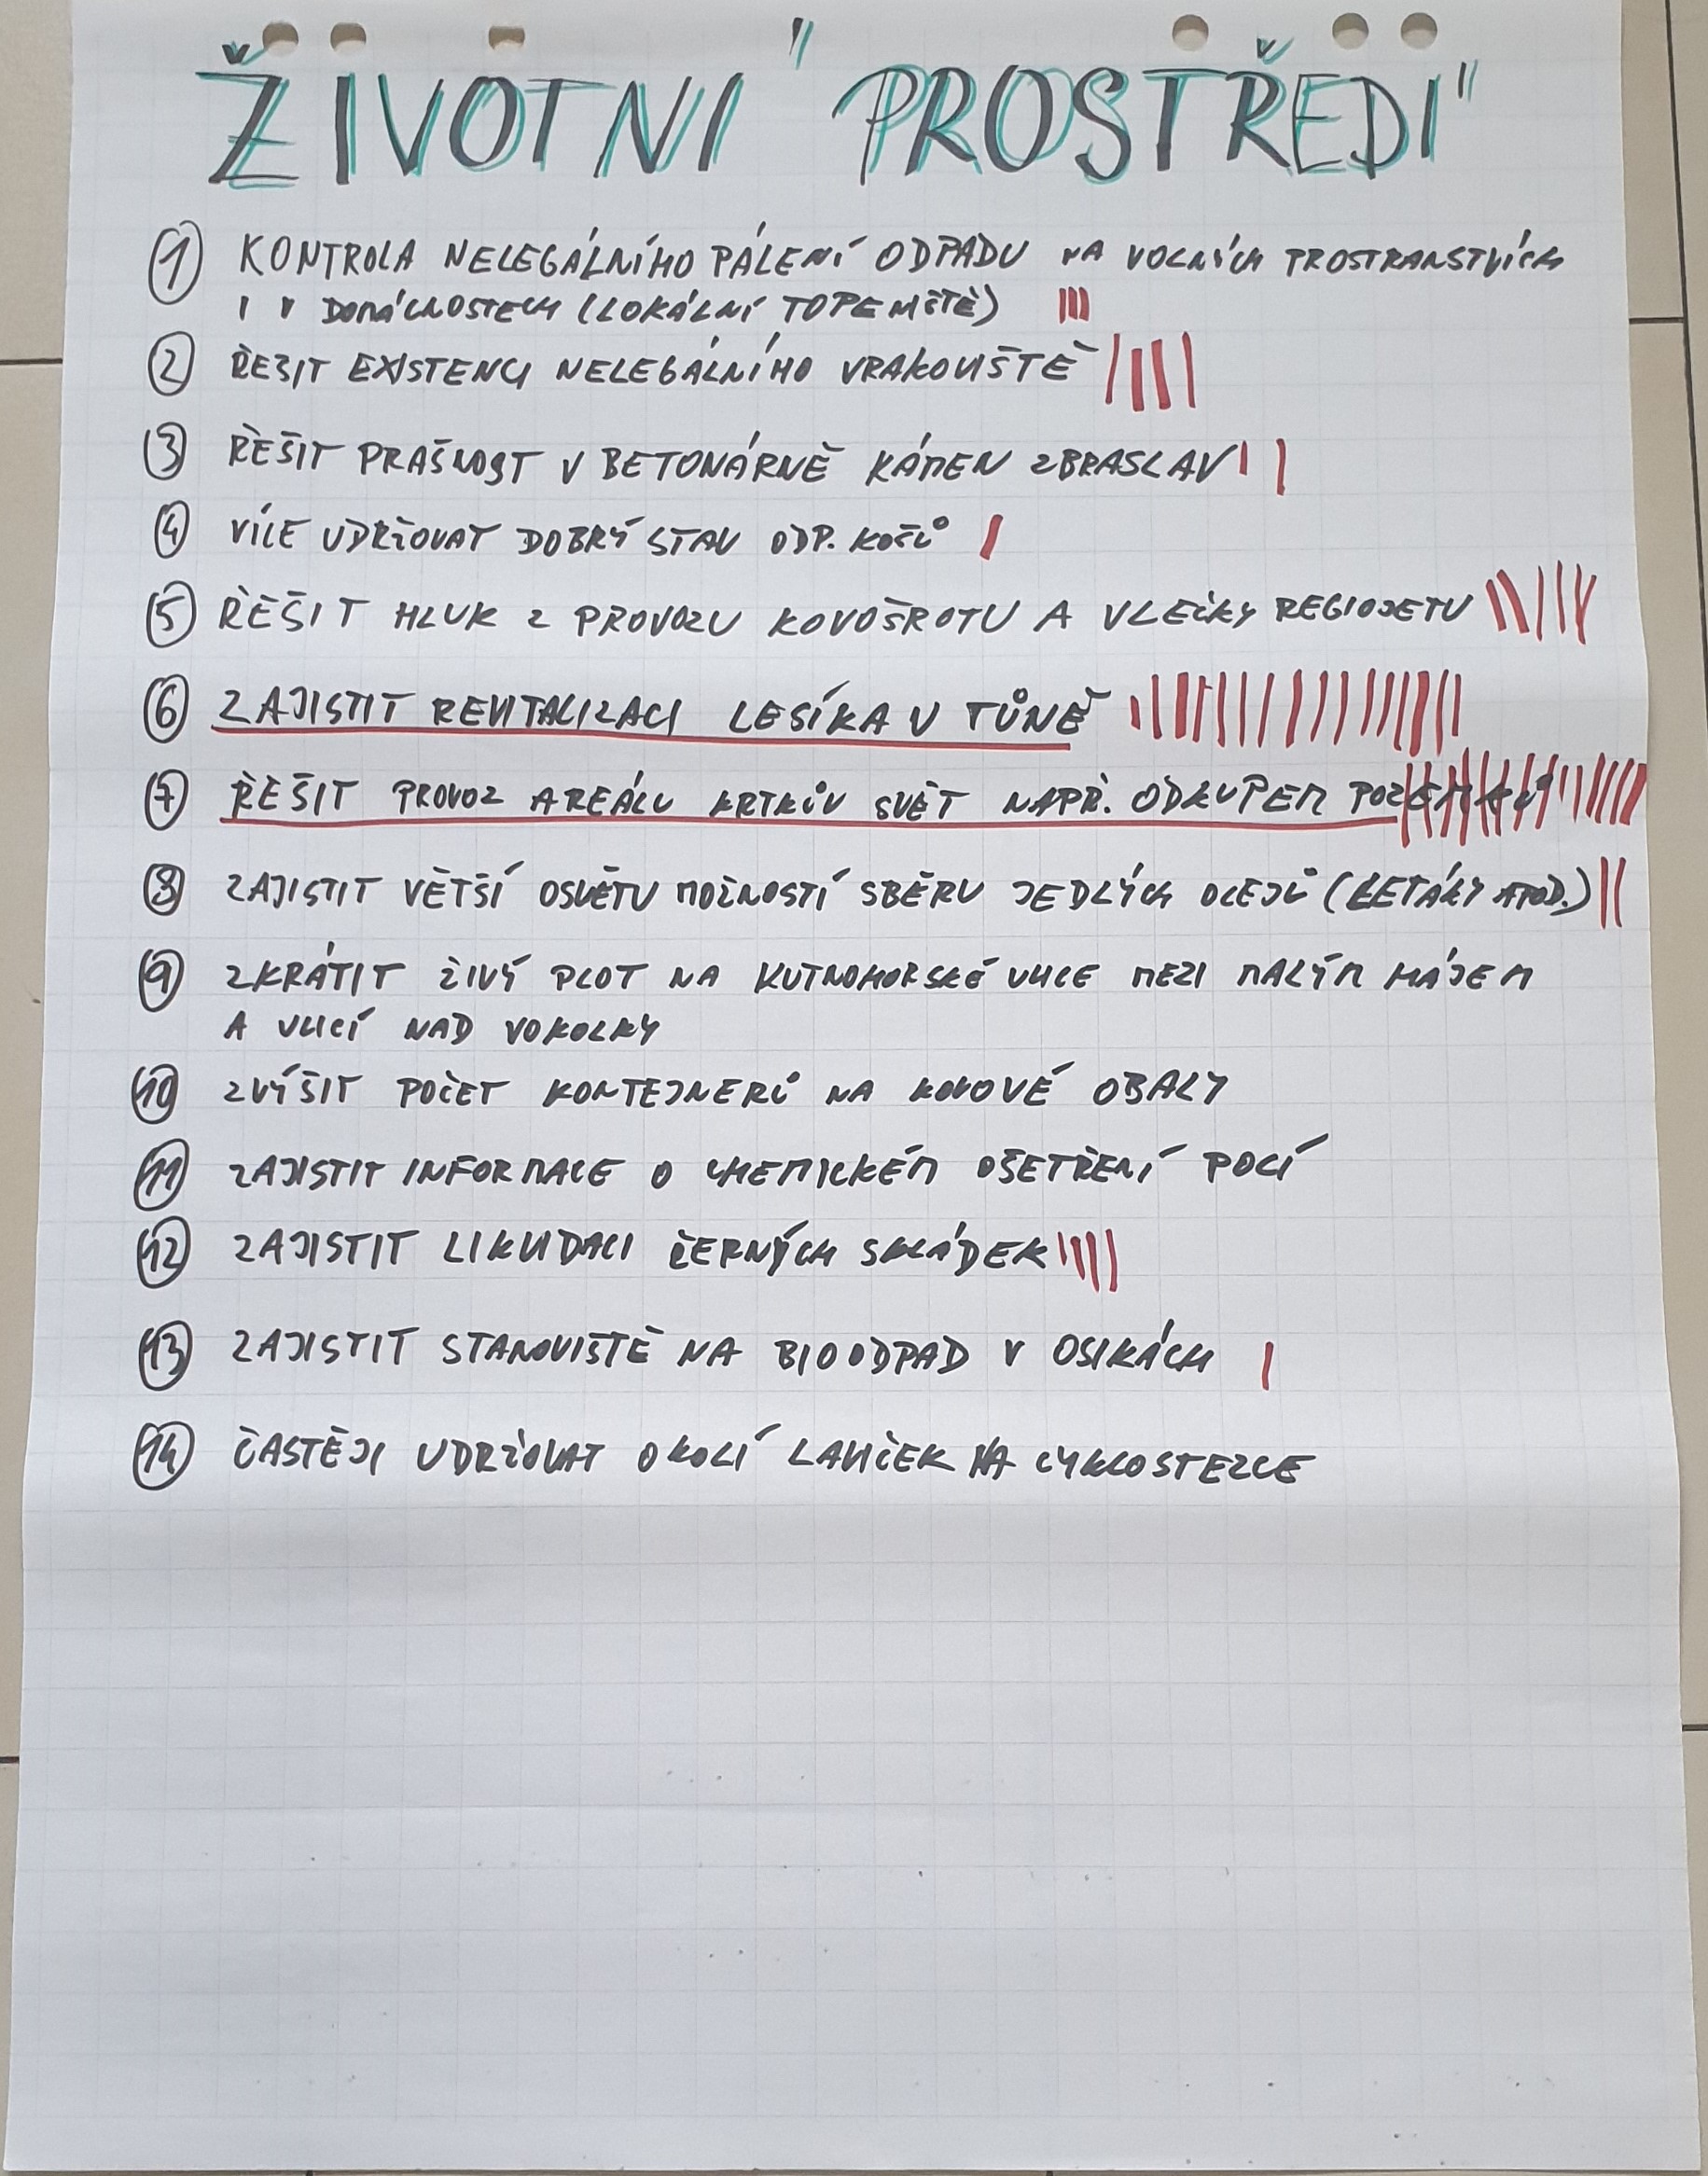 ŽIVOTNÍ PROSTŘEDÍ
1 KONTROLA NELEGÁLNÍHO PÁLENÍ ODPADU NA VOLNÝCH PROSTRANSTVÍCH
I V DOMÁCNOSTECH (LOKÁLNÍ TOPENIŠTĚ)
2 ŘEŠIT EXISTENCI NELEGÁLNÍHO VRAKOVIŠTĚ
3 ŘEŠIT PRAŠNOST V BETONÁRNĚ KÁMEN ZBRASLAV
4 VÍCE UDRŽOVAT DOBRÝ STAV ODP. KOŠŮ
5 ŘEŠIT HLUK Z PROVOZU KOVOŠROTU A VLEČKY REGIOJETU
6 ZAJISTIT REVITALIZACI LESÍKA V TŮNĚ
7 ŘEŠIT PROVOZ AREÁLU KRTKŮV SVĚT NAPŘ. ODKUPEM POZEMKŮ
8 ZAJISTIT VĚTŠÍ OSVĚTU MOŽNOSTÍ SBĚRU JEDLÝCH OLEJŮ (LETÁKY APOD.)
9 ZKRÁTIT ŽIVÝ PLOT NA KUTNOHORSKÉ ULICE MEZI MALÝM HÁJEM
A ULICÍ NAD VOKOLKY
10 ZVÝŠIT POČET KONTEJNERŮ NA KOVOVÉ OBALY
11 ZAJISTIT INFORMACE O CHEMICKÉM OŠETŘENÍ POLÍ
12 ZAJISTIT LIKVIDACI ČERNÝCH SKLÁDEK
13 ZAJISTIT STANOVIŠTĚ NA BIOODPAD V OSIKÁCH
14 ČASTĚJI UDRŽOVAT OKOLÍ LAVIČEK NA CYKLOSTEZCE